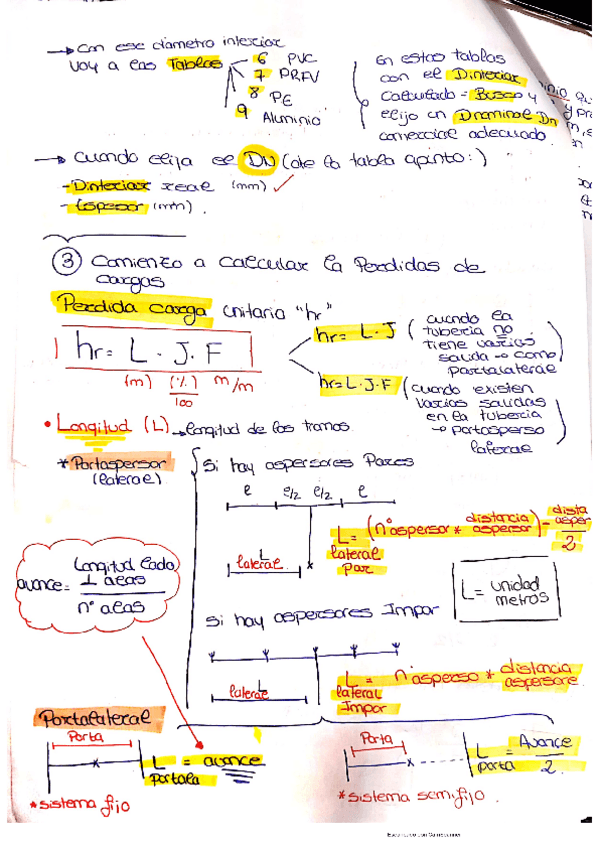 → Con ese diametro interior
voy a las Tablas
6 PVC
7 PRFV
8 PE
9 Aluminio
En estas tablas
con el Dinterior
calculado = Busco y
elijo un Dnominal Dn
comercial adecuado.
→ Cuando elija el DN (de la tabla apinto:)
- Dinterior real (mm) ✓
- Espesor (mm).
③ Comienzo a calcular la Perdidas de
cargas
Perdida carga unitaria "hr"
hr = L . J . F
(m) (%) m/m
100
hr = L . J
(cuando la
tuberia no
tiene varias
salida → como
portalateral)
hr = L . J . F
(cuando existen
varias salidas
en la tuberia
→ portasperso
lateral)
• Longitud (L) → longitud de los tramos
* Portaspersor
(lateral)
Si hay aspersores Pares
e e/2 e/2 e
L
lateral
L = (nº aspersor * distancia aspersor) - dista asper / 2
lateral
Par
avance = Longitud lado ⊥ alas / nº alas
L = unidad
metros
Si hay aspersores Impar
L
lateral
L = nº asperso * distancia aspersore
lateral
Impar
Portalateral
Porta
L = avance
portala
* sistema fijo
Porta
L = Avance / 2
porta
* sistema semifijo.
Escaneado con CamScanner